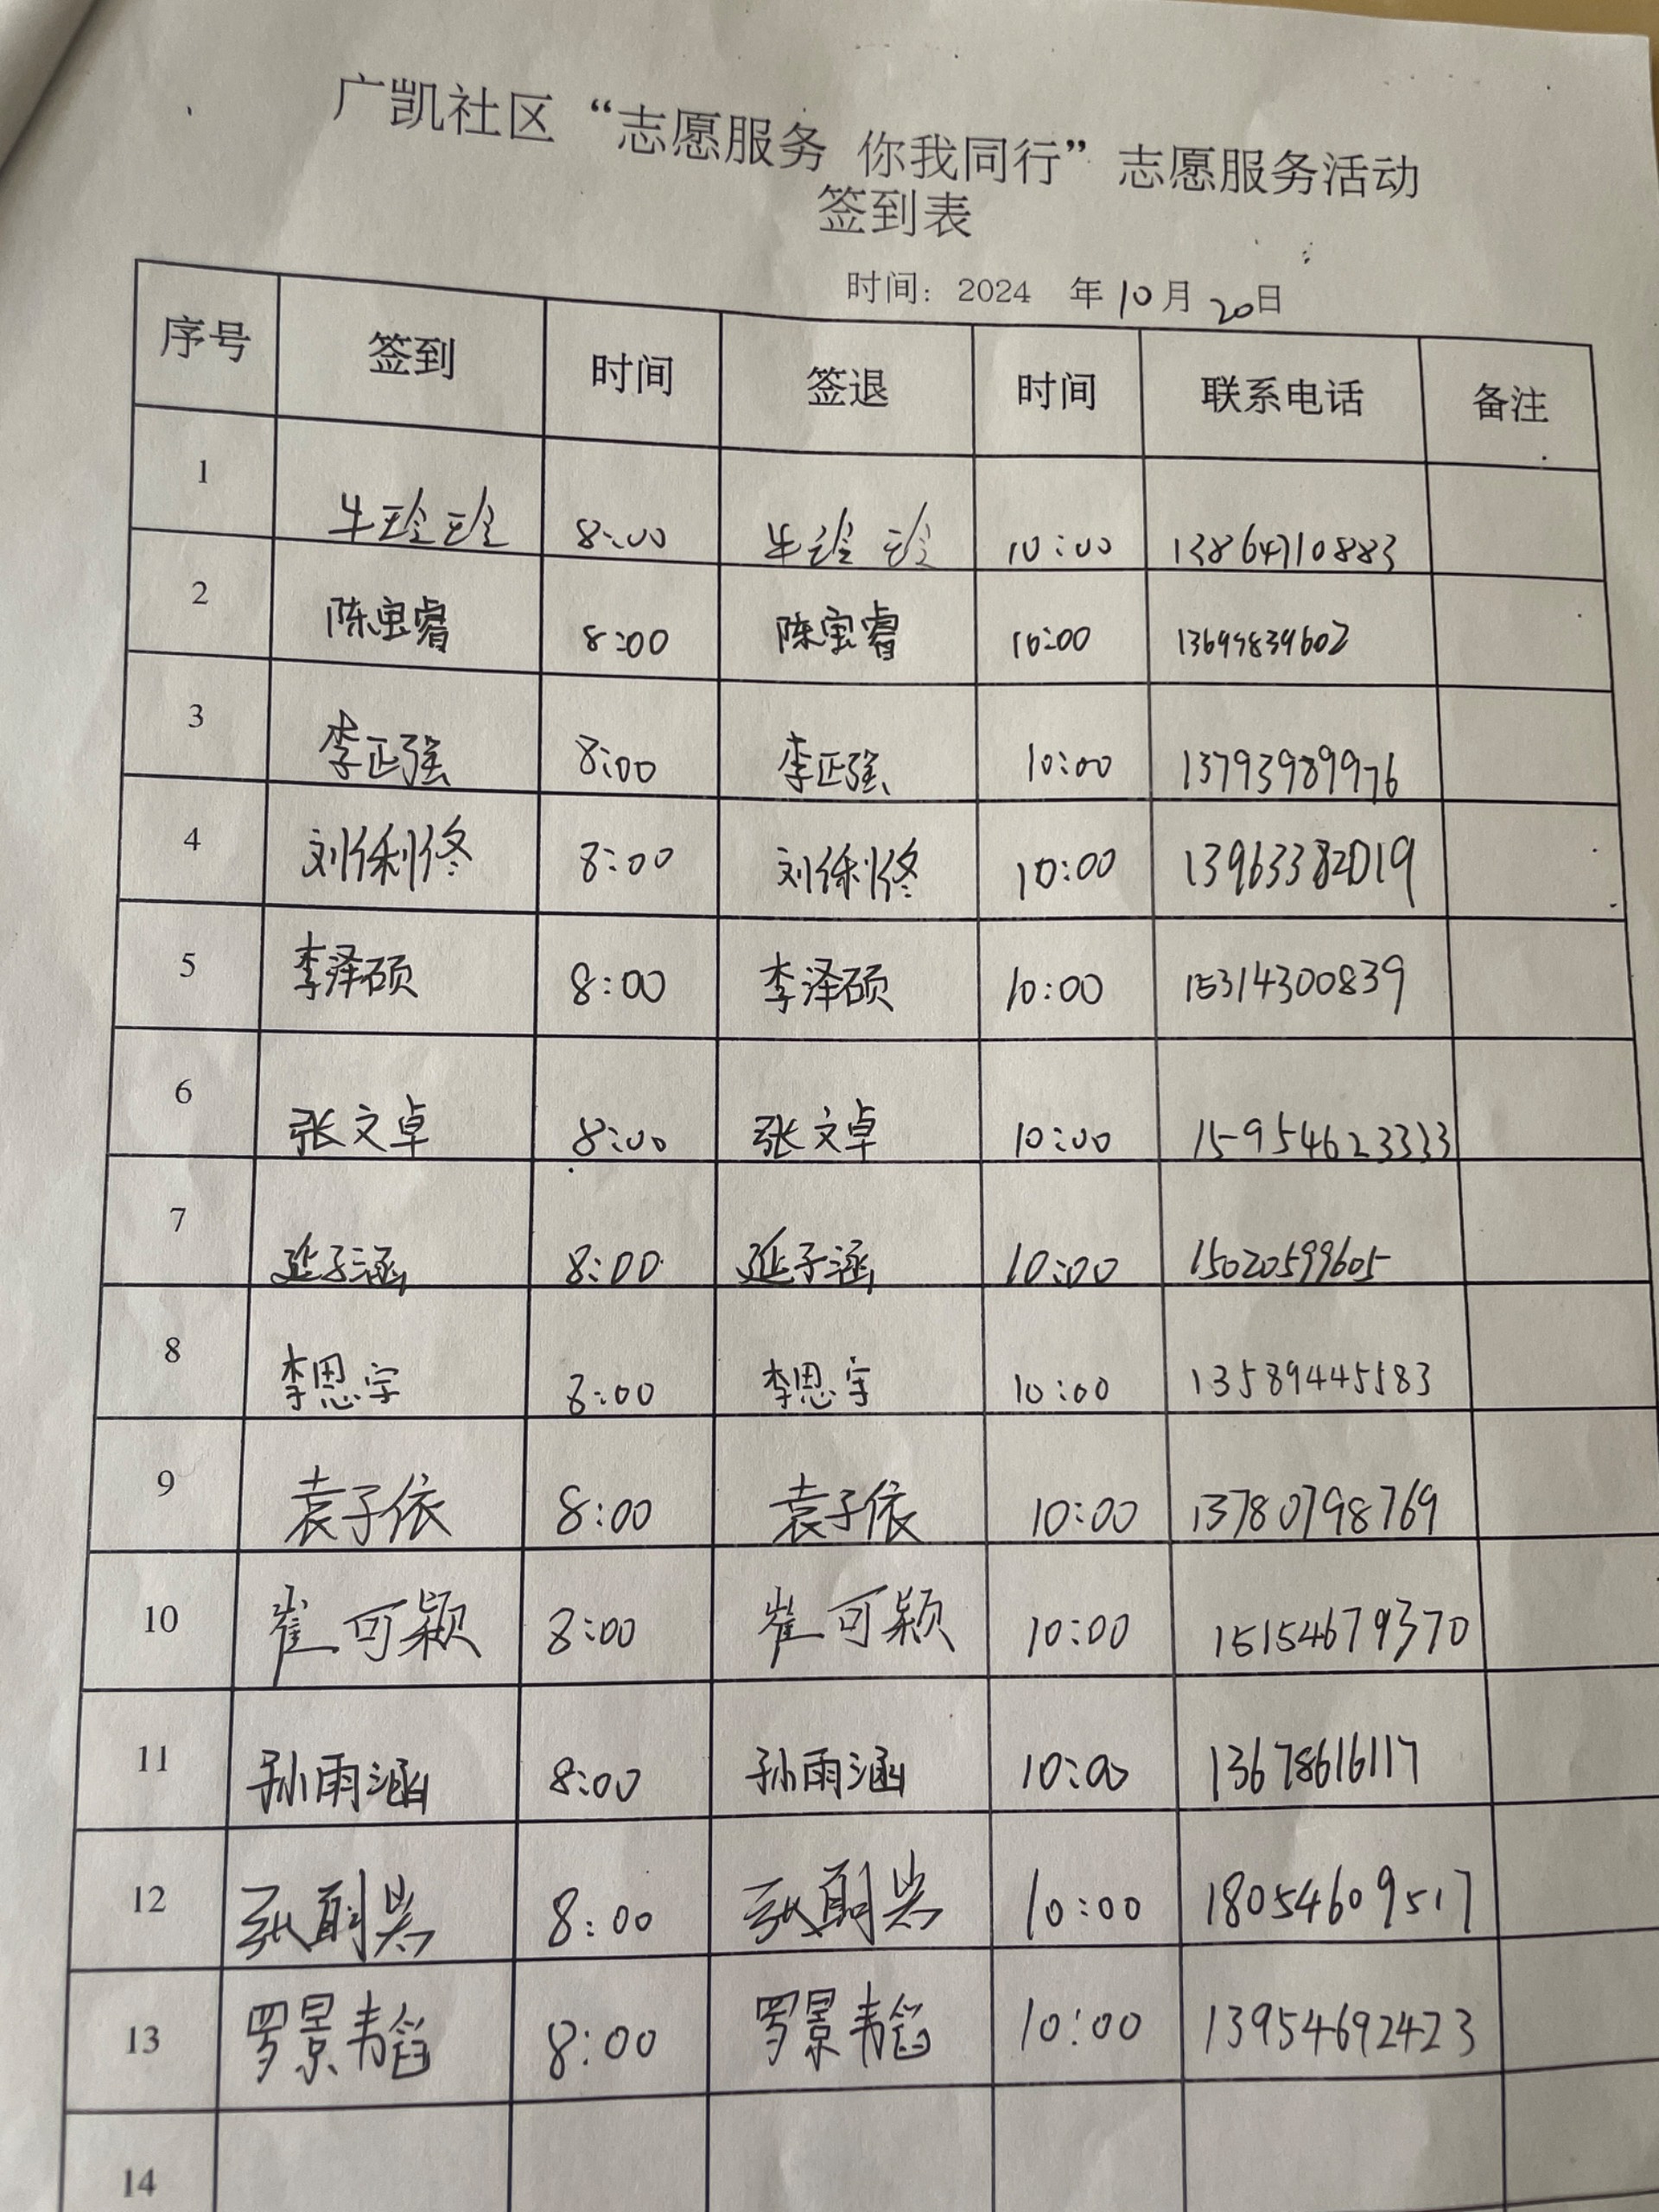 广凯社区“志愿服务 你我同行”志愿服务活动
签到表
时间：2024 年10月20日
序号 签到 时间 签退 时间 联系电话 备注
1 牛玲玲 8:00 牛玲玲 10:00 13864710883
2 陈宝睿 8:00 陈宝睿 10:00
3 李正强 8:00 李正强 10:00 13793989976
4 8:00 10:00 13963382019
5 李泽硕 8:00 李泽硕 10:00 15314300839
6 张文卓 8:00 张文卓 10:00
7 延子涵 8:00 延子涵 10:00 15020599605
8 李思宇 8:00 李思宇 10:00 13589445583
9 袁子依 8:00 袁子依 10:00 13780798769
10 崔可颖 8:00 崔可颖 10:00 15154679370
11 孙雨涵 8:00 孙雨涵 10:00 13678616117
12 8:00 10:00 18054609517
13 罗景韬 8:00 罗景韬 10:00 13954692423
14